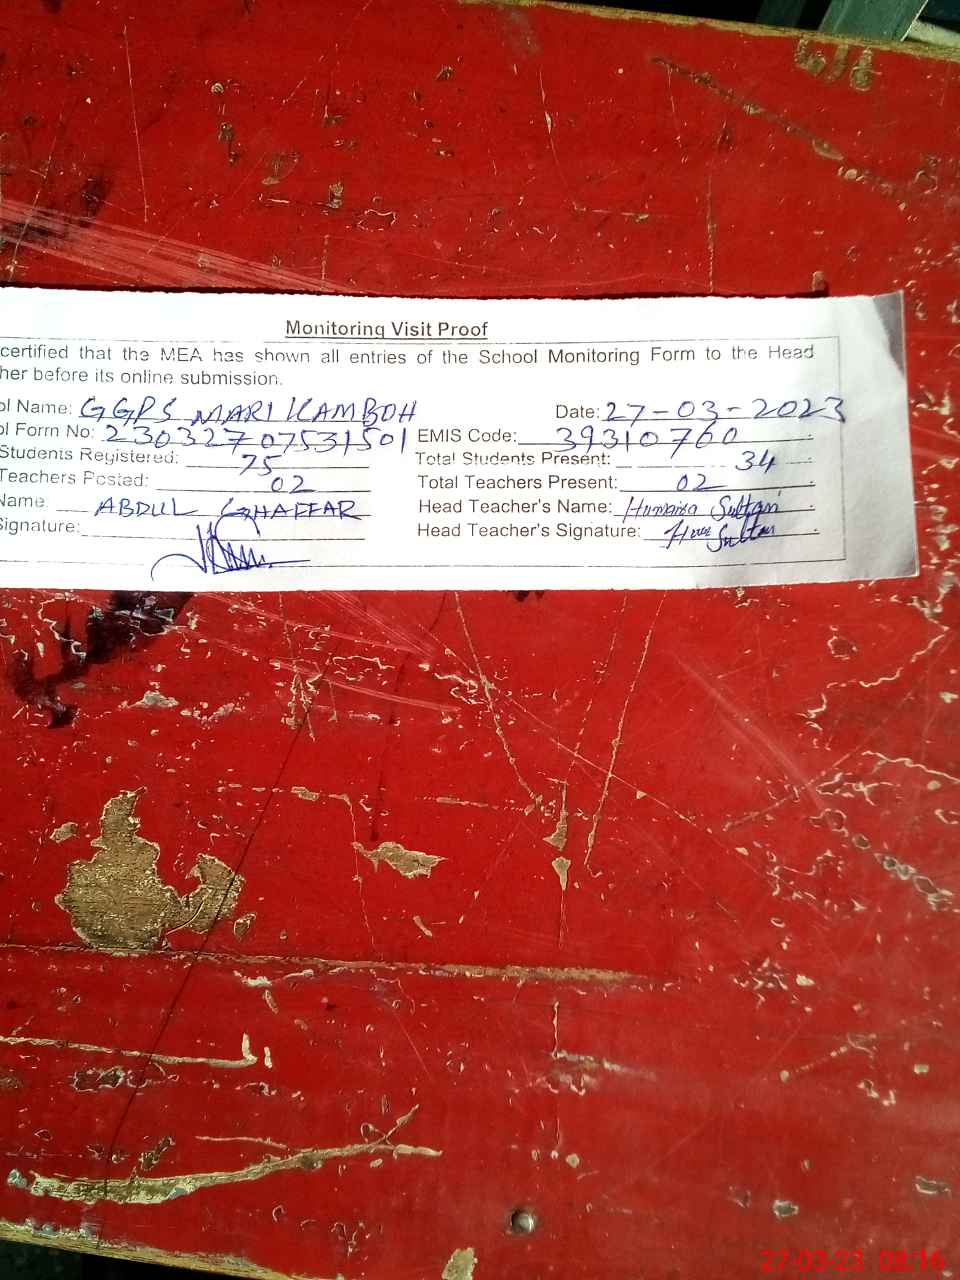 Monitoring Visit Proof
certified that the MEA has shown all entries of the School Monitoring Form to the Head
her before its online submission.
ol Name: GGPS MARI KAMBOH Date: 27-03-2023
ol Form No: 23032707531501 EMIS Code: 39310760
Students Registered: 75 Total Students Present: 34
Teachers Posted: 02 Total Teachers Present: 02
Name ABDUL GHAFFAR Head Teacher's Name: Humaira Sultan
Signature: Head Teacher's Signature: Sultan
27-03-23 08:16